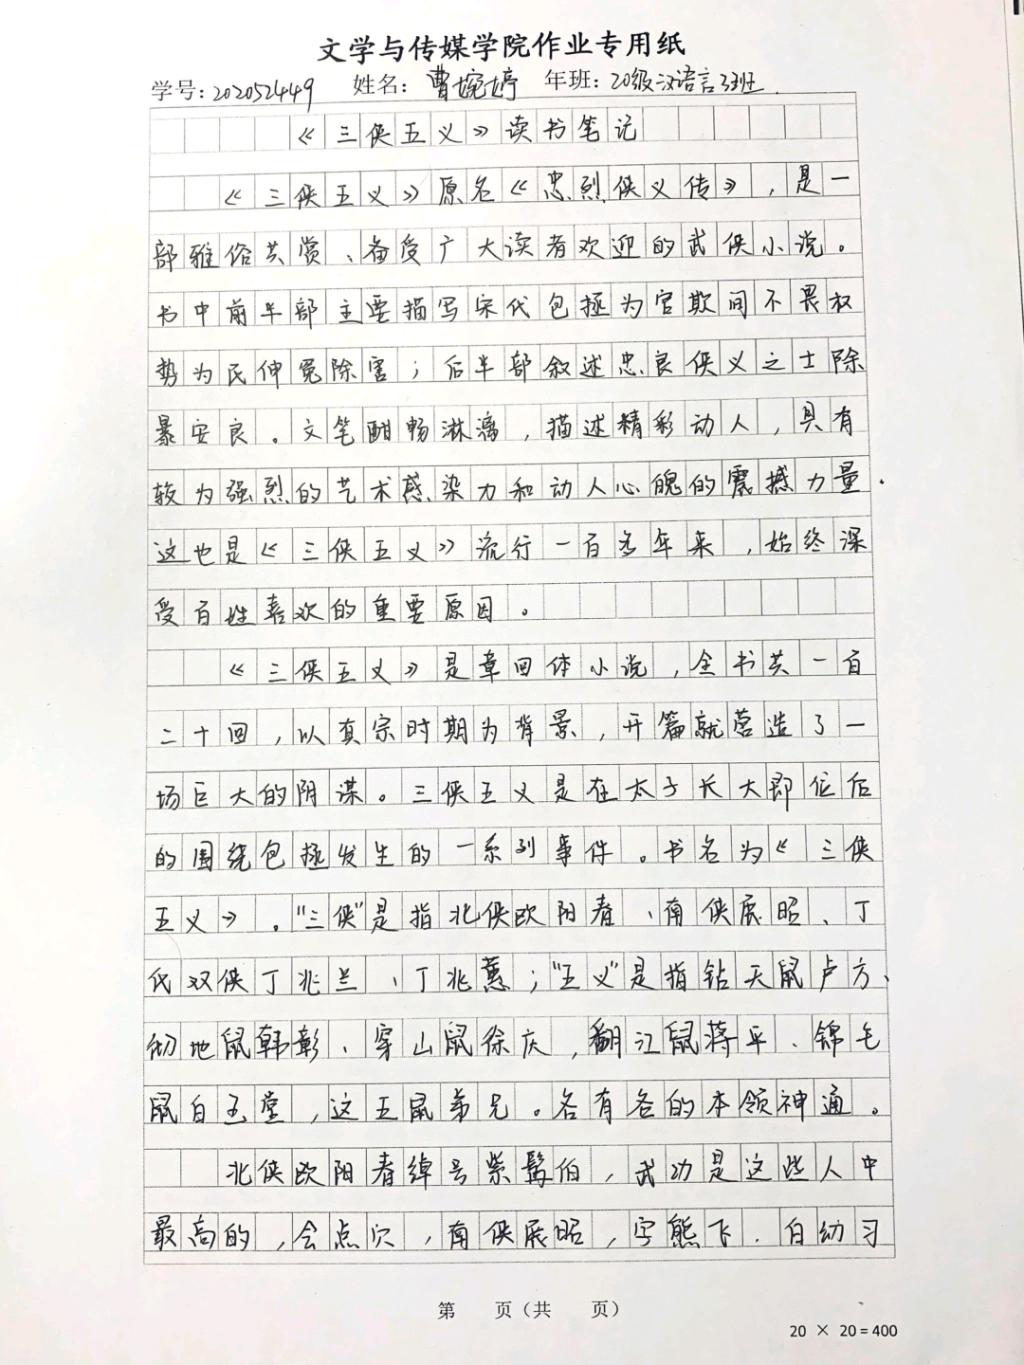 文学与传媒学院作业专用纸
学号:202052449 姓名:曹婉婷 年班:20级汉语言3班.
《三侠五义》读书笔记
《三侠五义》原名《忠烈侠义传》,是一
部雅俗共赏、备受广大读者欢迎的武侠小说。
书中前半部主要描写宋代包拯为官欺间不畏权
势为民伸冤除害;后半部叙述忠良侠义之士除
暴安良。文笔酣畅淋漓,描述精彩动人,具有
较为强烈的艺术感染力和动人心魄的震撼力量.
这也是《三侠五义》流行一百多年来,始终深
受百姓喜欢的重要原因。
《三侠五义》是章回体小说,全书共一百
二十回,以真宗时期为背景,开篇就营造了一
场巨大的阴谋。三侠五义是在太子长大即位后
的围绕包拯发生的一系列事件。书名为《三侠
五义》。“三侠”是指北侠欧阳春、南侠展昭、丁
氏双侠丁兆兰、丁兆蕙;“五义”是指钻天鼠卢方、
彻地鼠韩彰、穿山鼠徐庆,翻江鼠蒋平、锦毛
鼠白玉堂,这五鼠弟兄。各有各的本领神通。
北侠欧阳春绰号紫髯伯,武功是这些人中
最高的,会点穴,南侠展昭,字熊飞.自幼习
第 页(共 页)
20 × 20=400